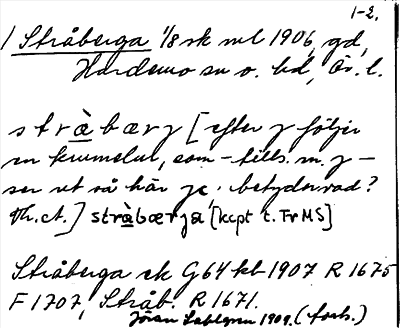 1-2.
/ Stråberga 1/8 sk ml 1906, gd,
Hardemo sn o. hd, Ör. l.
stràbærȷ [efter ȷ följer
en krumelur, som – tills. m. ȷ –
ser ut så här ȷc. betyder vad?
Th. A.] stràbærja [kcpt t. Fr MS]
Stråberga sk G64 kb 1907 R 1675
F 1707, Stråb. R 1671.
Jöran Sahlgren 1909. (forts.)